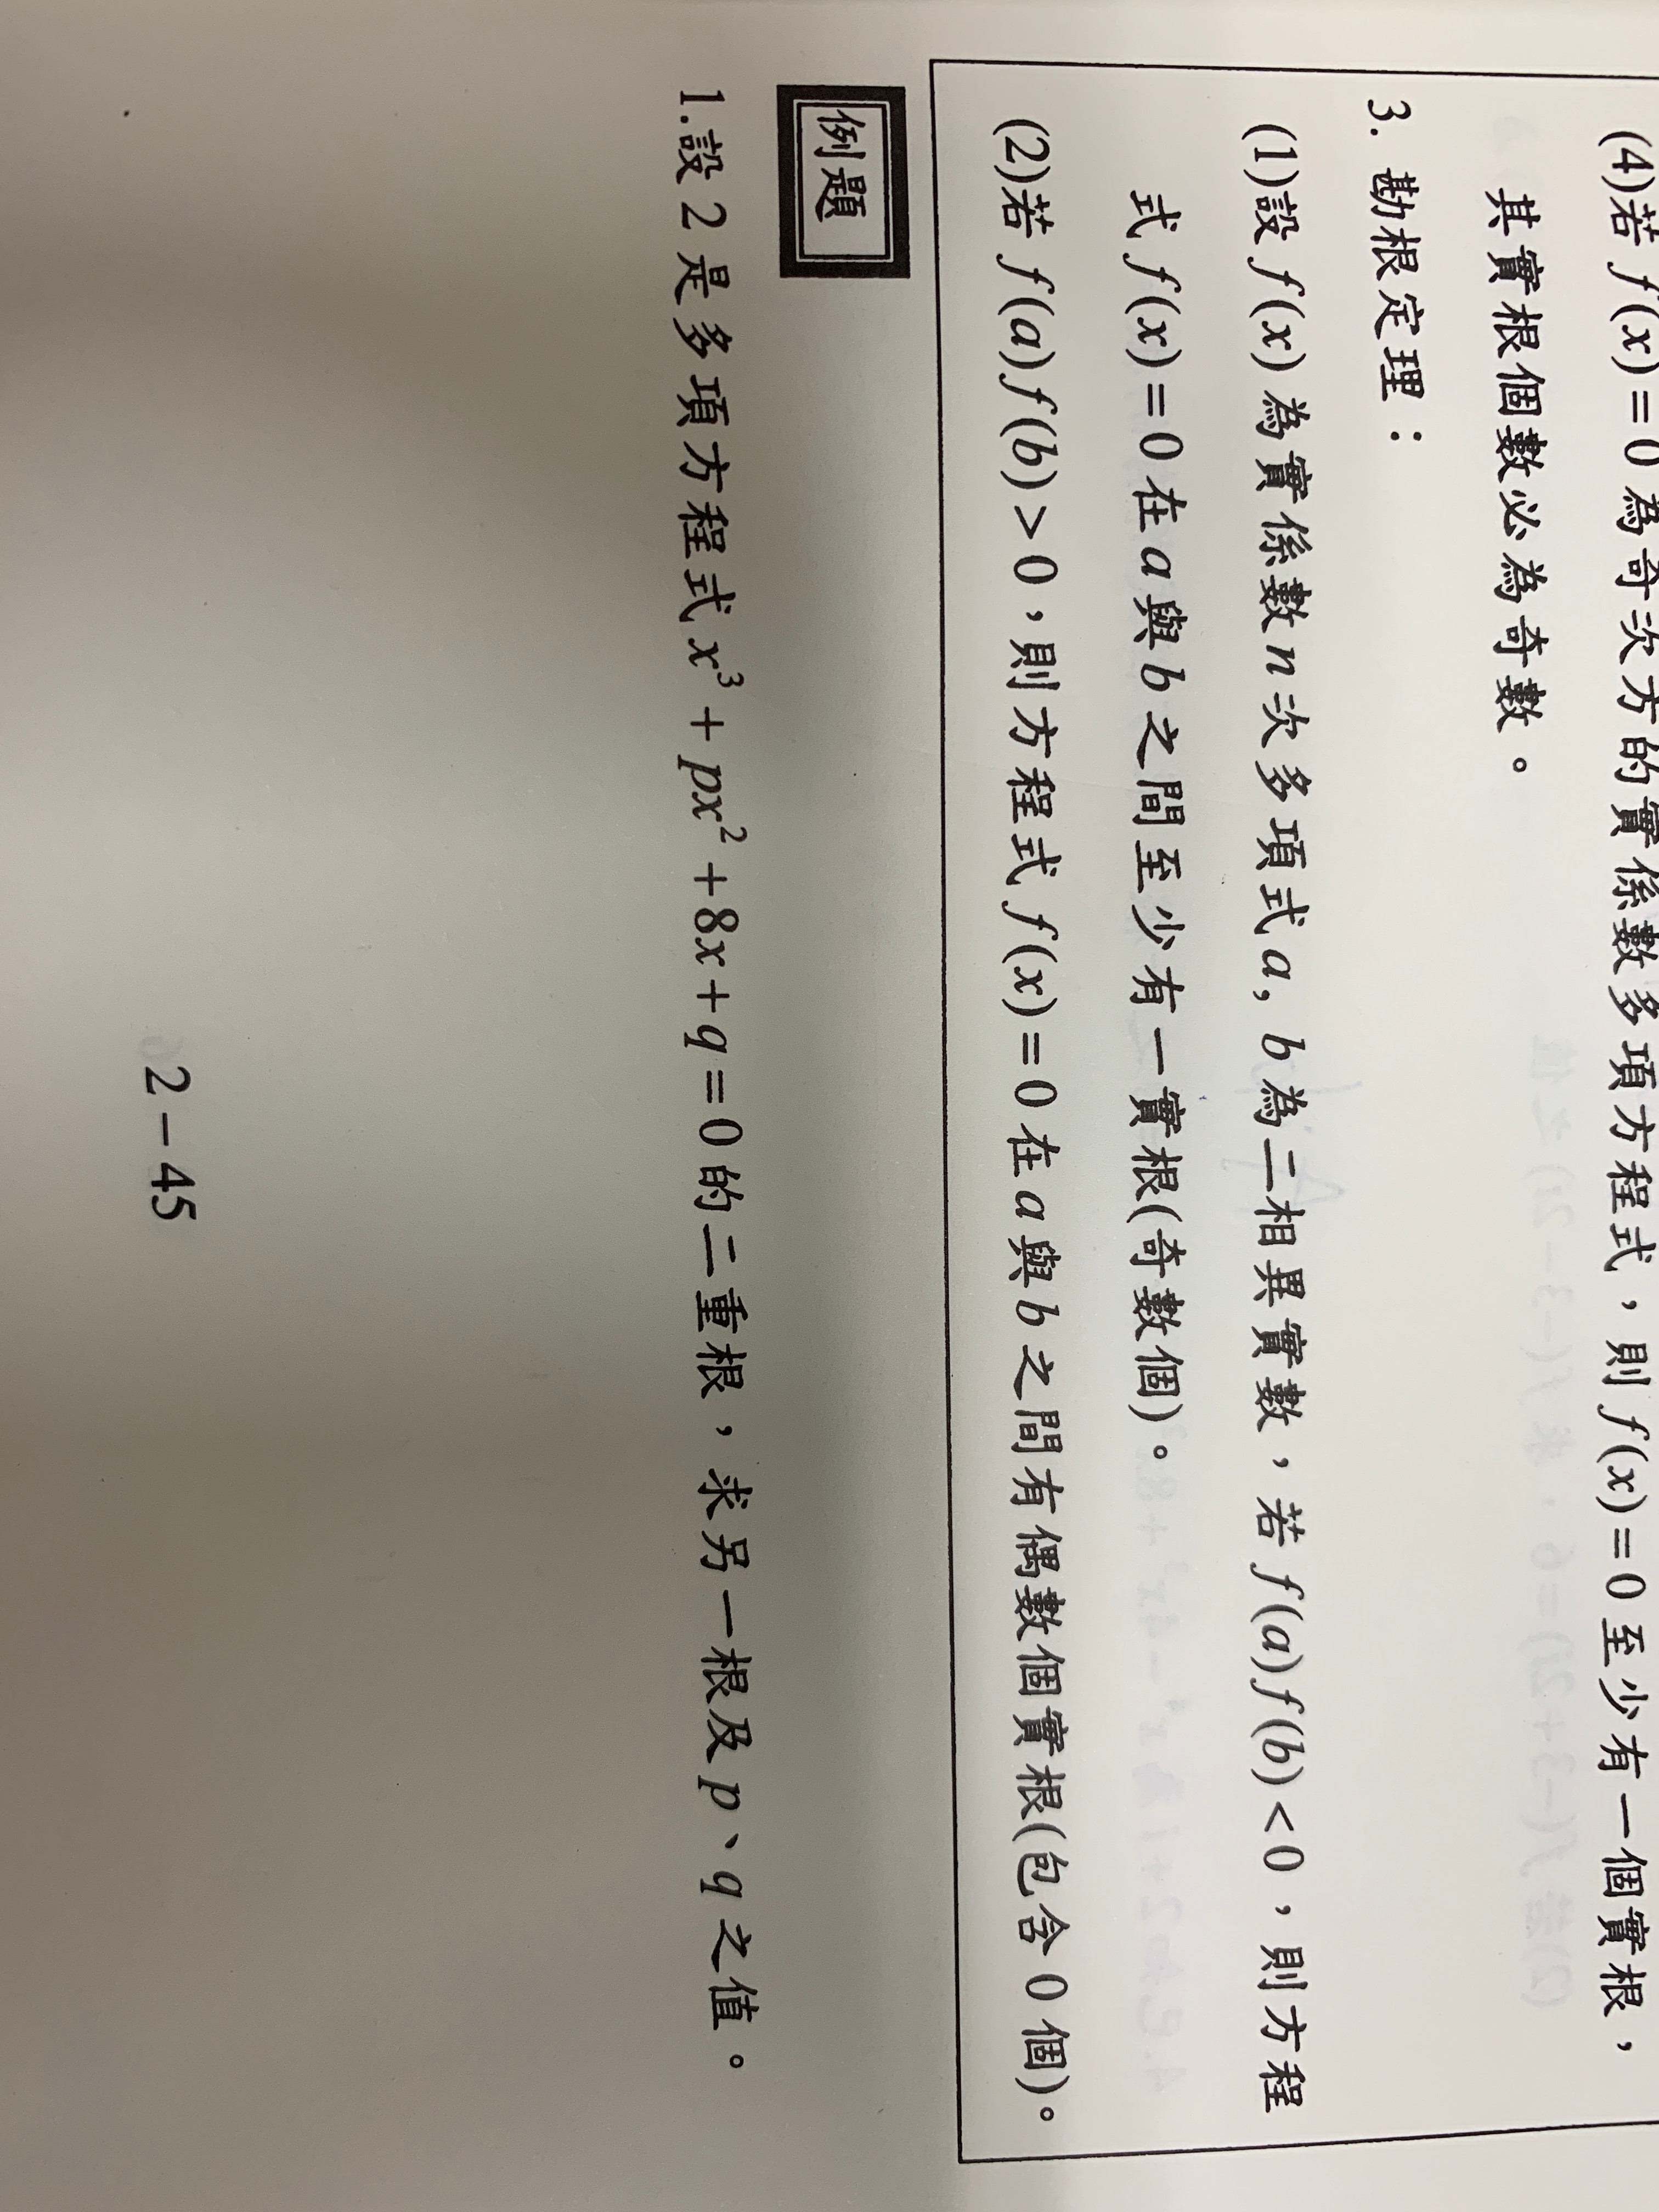 (4)若 f(x)=0 為奇次方的實係數多項方程式，則 f(x)=0 至少有一個實根，
其實根個數必為奇數。
3. 勘根定理：
(1)設 f(x) 為實係數 n 次多項式 a, b 為二相異實數，若 f(a)f(b)<0，則方程
式 f(x)=0 在 a 與 b 之間至少有一實根(奇數個)。
(2)若 f(a)f(b)>0，則方程式 f(x)=0 在 a 與 b 之間有偶數個實根(包含 0 個)。
例題
1.設 2 是多項方程式 x³+px²+8x+q=0 的二重根，求另一根及 p、q 之值。
2－45